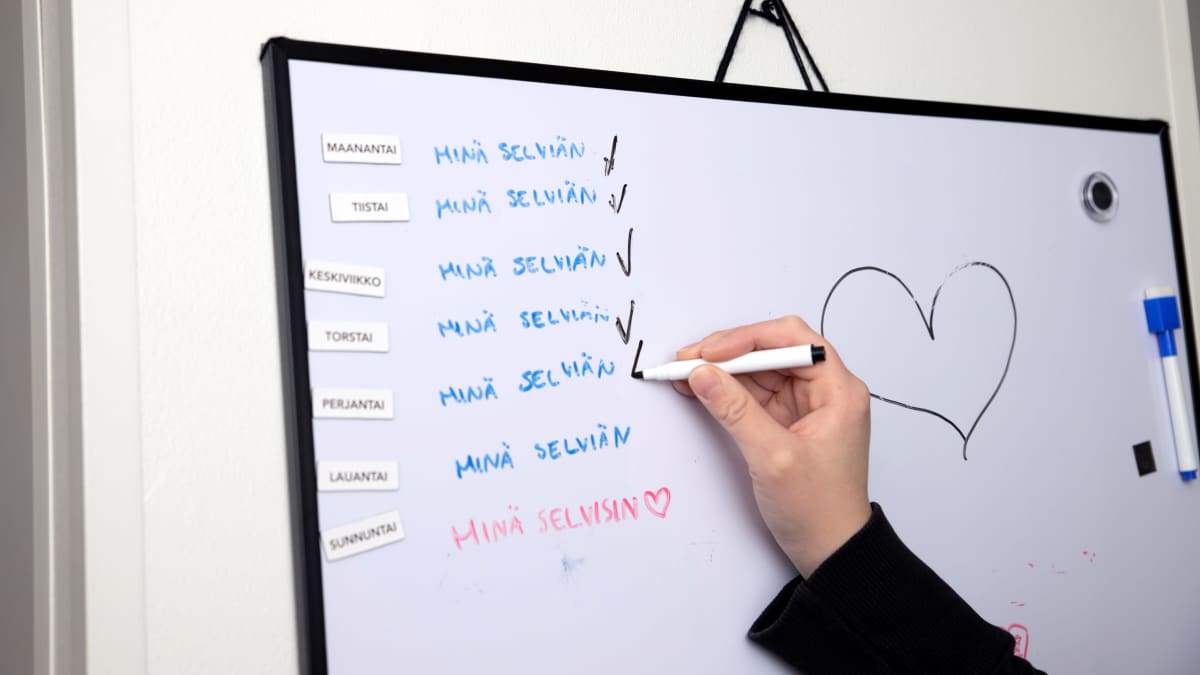 MAANANTAI MINÄ SELVIÄN
TIISTAI MINÄ SELVIÄN
KESKIVIIKKO MINÄ SELVIÄN
TORSTAI MINÄ SELVIÄN
PERJANTAI MINÄ SELVIÄN
LAUANTAI MINÄ SELVIÄN
SUNNUNTAI MINÄ SELVISIN